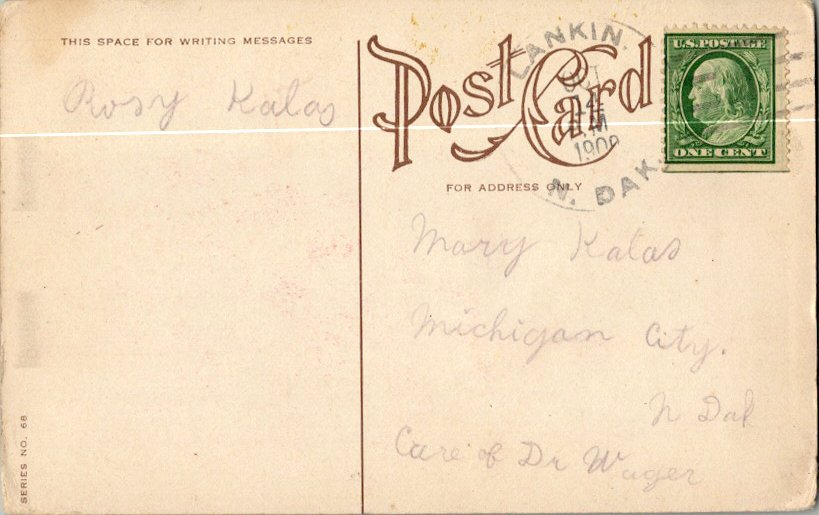 THIS SPACE FOR WRITING MESSAGES
Rosy Kalas
Post Card
FOR ADDRESS ONLY
LANKIN.
N. DAK.
U.S. POSTAGE
ONE CENT
Mary Kalas
Michigan City.
N Dak
Care of Dr Wager
SERIES NO. 68